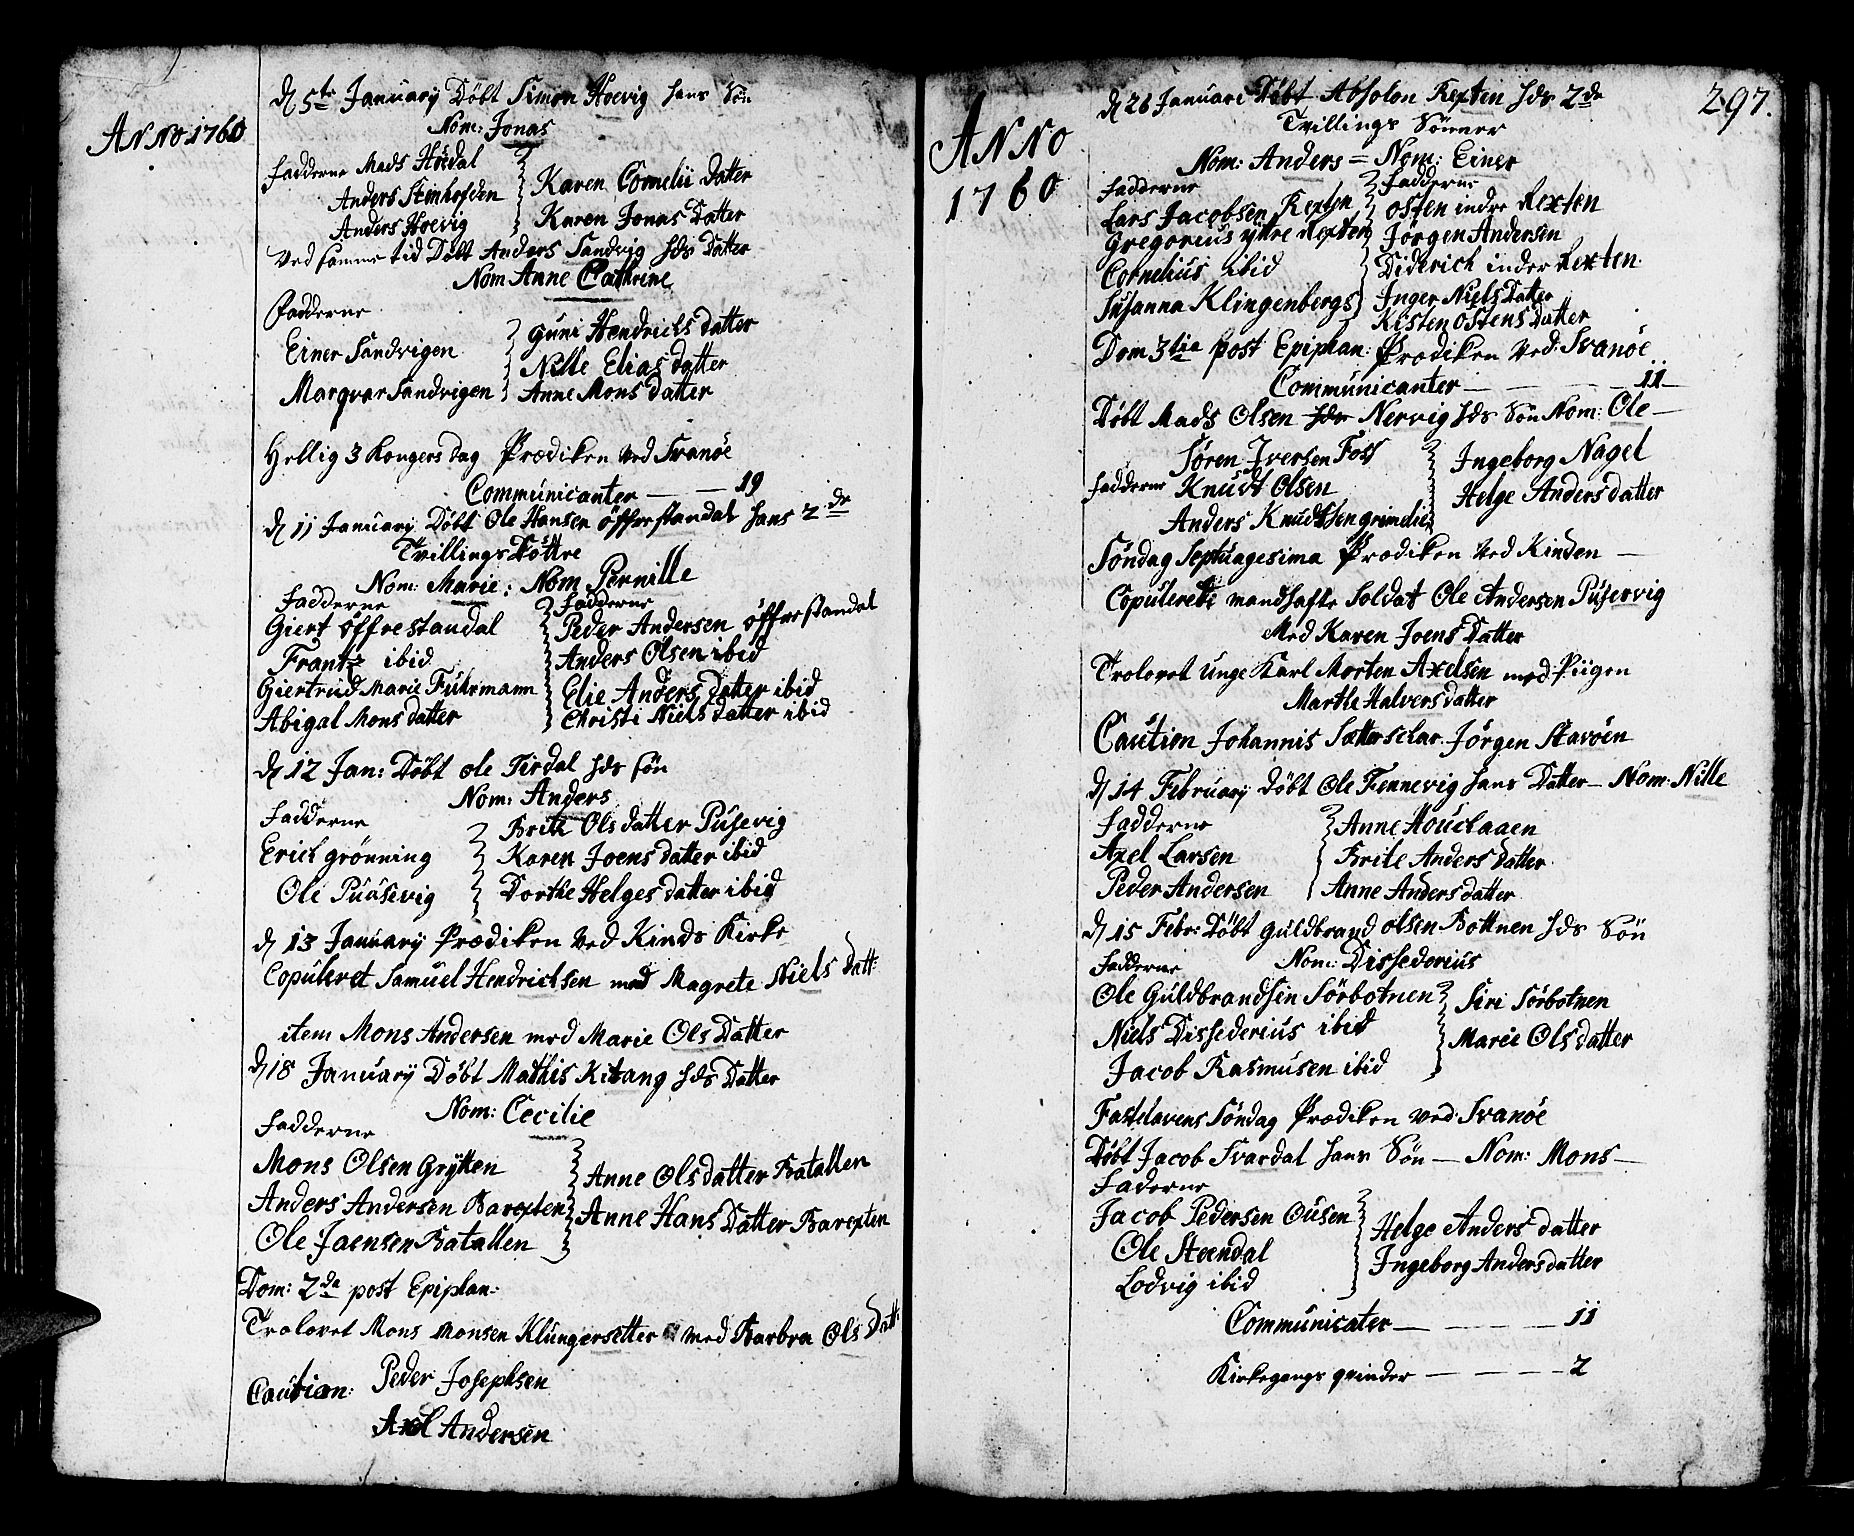 ANNO 1760
d 5te January Döbt Simon Hoevig hans Sön
Nom: Jonas
Fadderne Mads Höedal
Anders Steinhofden
Anders Hoevig
Karen Cornelii Datter
Karen Jonas Datter
Ved samme tid Döbt Anders Sandvig hds Datter
Nom Anne Cathrine
Fadderne
Einer Sandvigen
Marqvar Sandvigen
Guni Hendrichs datter
Nille Elias datter
Anne Mons datter
Hellig 3 Kongers dag Prædiken ved Svanöe
Communicanter — — 19
d 11 January Döbt Ole Hansen öffrestandal hans 2de
Tvillings Döttre
Nom: Marie: Nom Pernille
Fadderne
Giert öffrestandal
Frantz ibid
Giertrud Marie Fuhrmann
Abigal Mons datter
Fadderne
Peder Andersen öffrestandal
Anders Olsen ibid
Elie Anders datter ibid
Christi Niels datter ibid
d 12 Jan: Döbt ole Tirdal hds sön
Nom: Anders
Fadderne
Erich grönning
Ole Puusevig
Brite Ols datter Pusevig
Karen Joens datter ibid
Dorthe Helges datter ibid
d 13 January Prædiken ved Kinds Kirke
Copuleret Samuel Hendrichsen med Magrete Niels Datt:
item Mons Andersen med Marie Ols Datter
d 18 January Döbt Mathis Kitang hds Datter
Nom: Cecilie
Fadderne
Mons Olsen Grytten
Anders Andersen Barexten
Ole Jaensen Batallen
Anne Ols datter Batallen
Anne Hans Datter Barexten
Dom: 2da post Epiphan:
Trolovet Mons Monsen Klungersetter med Barbra Ols Datt:
Caution: Peder Josephsen
Axel Andersen
297.
ANNO
1760
d 26 Januari Döbt Absolon Rextin hds 2de
Tvillings Sönner
Nom: Anders = Nom: Einer
Fadderne
Lars Jacobsen Rexten
Gregorius yttre Rexten
Cornelius ibid
Susanna Klingenbergs
Fadderne
Osten indre Rexten
Jörgen Andersen
Diderich inder Rexten
Inger Niels Datter
Kisten Ostens datter
Dom 3tia post Epiphan: Prædiken Ved: Svanöe
Communicanter — — — 11 —
Döbt Mads Olsen hds Nervig hds Sön Nom: Ole —
Fadderne
Sören Iversen Foss
Knudt Olsen
Anders Knudtsen grimelie
Ingeborg Nagel
Helge Anders datter
Söndag Septuagesima Prædiken ved Kinden —
Copulerede mandhafte Soldat Ole Andersen Puservig
Med Karen Joens Datter
Trolovet unge Karl Morten Axelsen med Piigen
Marthe Halvers datter
Caution Johannis Sætterselar Jörgen Stavöen
d 14 February döbt Ole Fennevig hans Datter — Nom: Nille
Fadderne
Axel Larsen
Peder Andersen
Anne Houclaaen
Brite Anders datter
Anne Anders datter
d 15 Febr: Döbt Guldbrand olsen Bottnen hds Sön
Nom: Dissederius
Fadderne
Ole Guldbrandsen Sörbotnen
Niels Dissederius ibid
Jacob Rasmusen ibid
Siri Sörbotnen
Marie Ols datter
Fastelavens Söndag Prædiken ved: Svanöe
Döbt Jacob Svardal hans Sön — Nom: Mons —
Faderne
Jacob Pedersen Ousen
Ole Steendal
Lodvig ibid
Helge Anders datter
Ingeborg Anders datter
Communicater — — — 11
Kirkegangs qvinder — — — 2